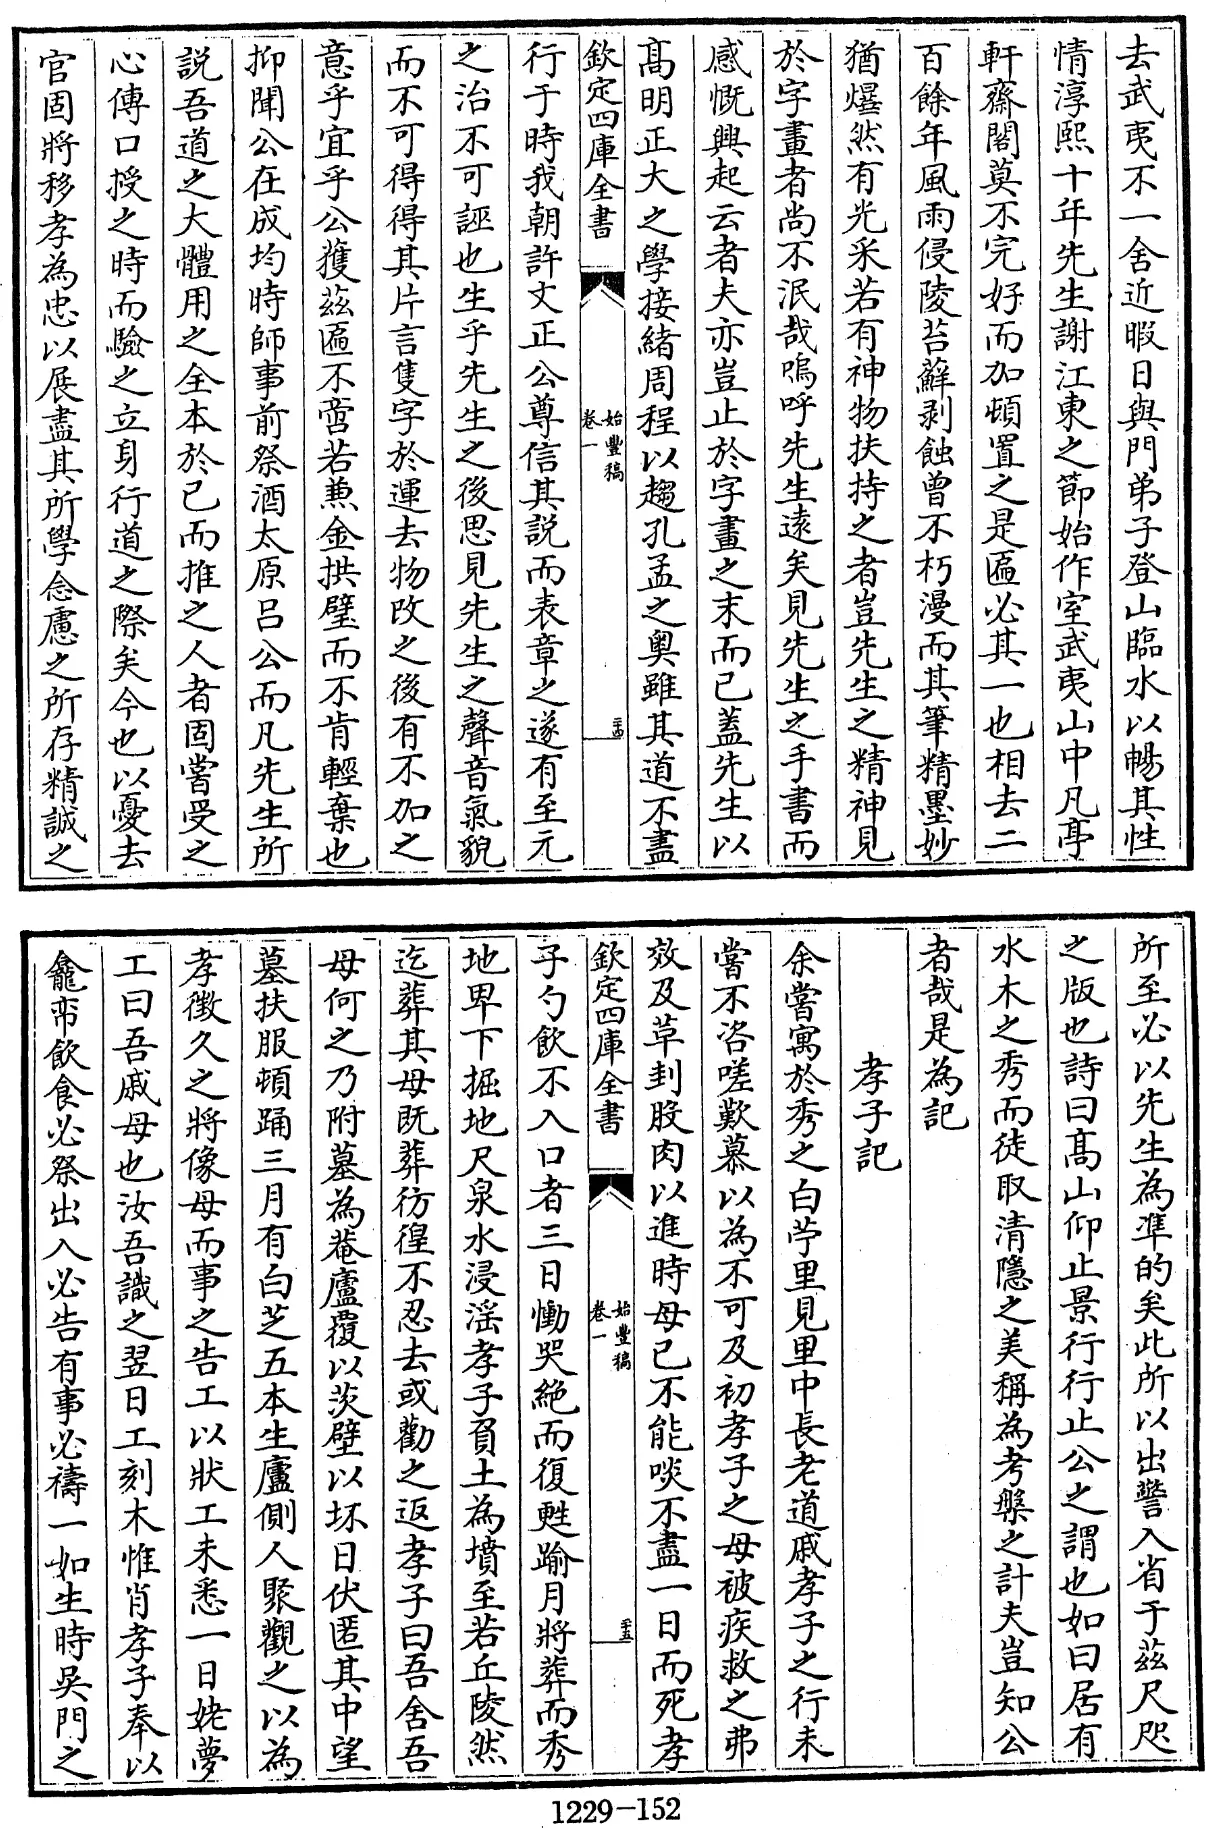 去武夷不一舍近暇日與門弟子登山臨水以暢其性
情淳熙十年先生謝江東之節始作室武夷山中凡亭
軒齋閣莫不完好而加頓置之是匾必其一也相去二
百餘年風雨侵陵苔蘚剥蝕曾不朽漫而其筆精墨妙
猶爗然有光采若有神物扶持之者豈先生之精神見
於字畫者尚不泯哉嗚呼先生遠矣見先生之手書而
感慨興起云者夫亦豈止於字畫之末而已蓋先生以
髙明正大之學接緒周程以趨孔孟之奥雖其道不盡
欽定四庫全書
始豐稿
卷一
二十四
行于時我朝許文正公尊信其説而表章之遂有至元
之治不可誣也生乎先生之後思見先生之聲音氣貌
而不可得得其片言隻字於運去物改之後有不加之
意乎宜乎公獲兹匾不啻若兼金拱璧而不肯輕棄也
抑聞公在成均時師事前祭酒太原吕公而凡先生所
説吾道之大體用之全本於已而推之人者固嘗受之
心傳口授之時而驗之立身行道之際矣今也以憂去
官固將移孝為忠以展盡其所學念慮之所存精誠之
所至必以先生為凖的矣此所以出警入省于兹尺咫
之版也詩曰髙山仰止景行行止公之謂也如曰居有
水木之秀而徒取清隱之美稱為考槃之計夫豈知公
者哉是為記
孝子記
余嘗寓於秀之白苧里見里中長老道戚孝子之行未
嘗不咨嗟歎慕以為不可及初孝子之母被疾救之弗
效及草刲股肉以進時母已不能啖不盡一日而死孝
欽定四庫全書
始豐稿
卷一
二十五
子勺飲不入口者三日慟哭絶而復甦踰月將葬而秀
地卑下掘地尺泉水浸滛孝子負土為墳至若丘陵然
迄葬其母既葬彷徨不忍去或勸之返孝子曰吾舍吾
母何之乃附墓為菴廬覆以茨壁以坏日伏匿其中望
墓扶服頓踊三月有白芝五本生廬側人聚觀之以為
孝徴久之將像母而事之告工以狀工未悉一日姥夢
工曰吾戚母也汝吾識之翌日工刻木惟肖孝子奉以
龕帟飲食必祭出入必告有事必禱一如生時吴門之
1229-152